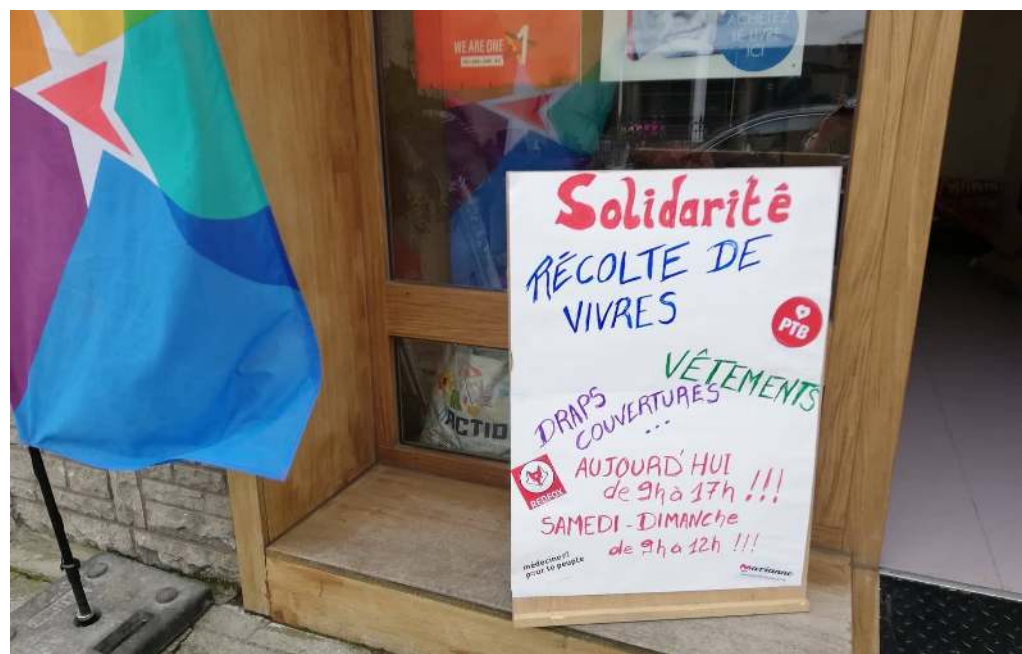 WE ARE ONE
1
ACHETEZ
LE LIVRE
ICI
Solidarité
RÉCOLTE DE
VIVRES
PTB
VÊTEMENTS
DRAPS
COUVERTURES
...
ACTIO
REDFOX
AUJOURD'HUI
de 9h à 17h !!!
SAMEDI - DIMANche
de 9h à 12h !!!
médecine
pour le peuple
marianne